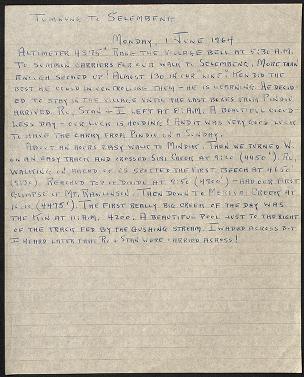 Tumbung to Selembeng
Monday, 1 June 1964
Altimeter 4375' Rang the village bell at 5:30 A.M.
to summon carriers for our walk to Selembeng. More than
enough showed up! Almost 130 in our line! Ken did the
best he could in controlling them - he is learning. He decid-
ed to stay in the village until the last boxes from Pindiu
arrived. Ro, Stan + I left at 8: A.M. A beautiful cloud-
less day - our luck is holding! And it was very good luck
to have the carry from Pindiu on a Sunday.
About an hours easy walk to Mindik. Then we turned W.
on an easy track and crossed Creek at 9:20 (4450'). Ro,
walking on ahead, spotted the first beech at 4650'
Reached top of divide at 9:50 (4800') - had our first
glimpse of Mt. Rawlinson. Then down to Creek at
(4475'). The first really big creek of the day was
the Kin at 11: A.M. 4200. A beautiful pool just to the right
of the track fed by the gushing stream. I waded across but
I heard later that Ro + Stan were carried across!